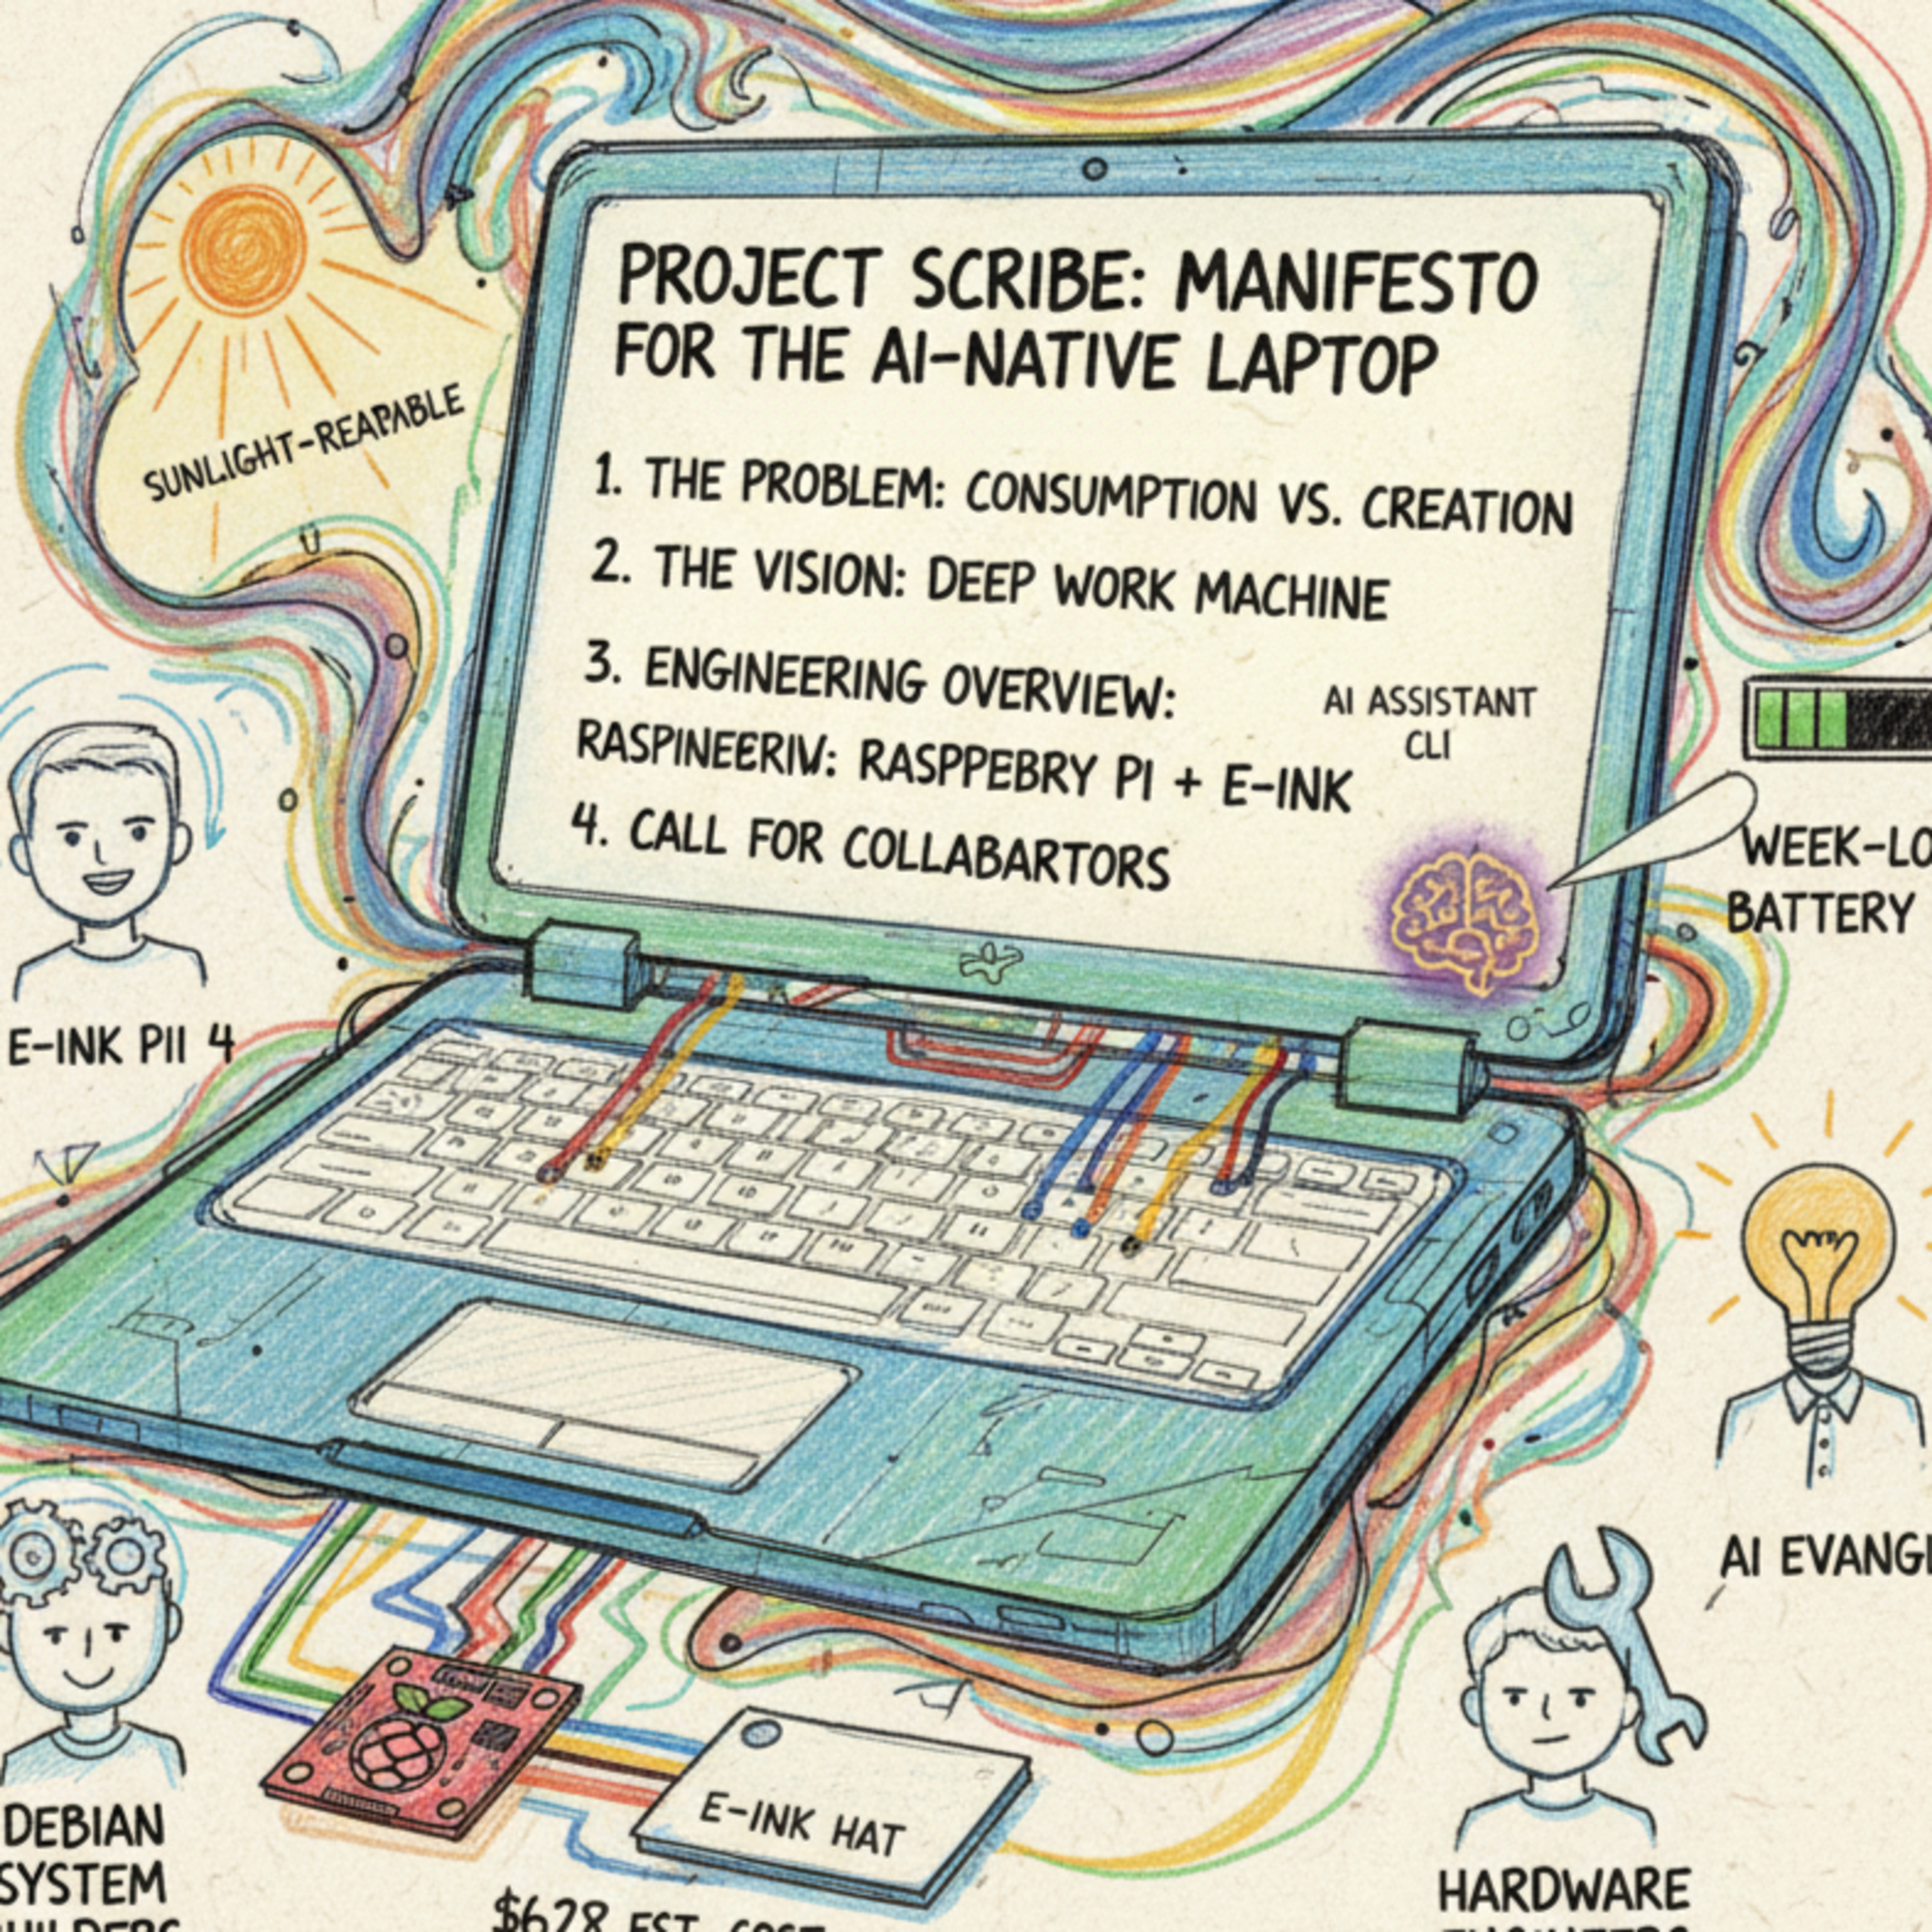 PROJECT SCRIBE: MANIFESTO
FOR THE AI-NATIVE LAPTOP
SUNLIGHT-REAPABLE
1. THE PROBLEM: CONSUMPTION VS. CREATION
2. THE VISION: DEEP WORK MACHINE
3. ENGINEERING OVERVIEW:
RASPINEERIV: RASPPEBRY PI + E-INK
4. CALL FOR COLLABARTORS
AI ASSISTANT
CLI
WEEK-LO
BATTERY
E-INK PII 4
AI EVANG
E-INK HAT
DEBIAN
SYSTEM
$628 EST. COST
HARDWARE